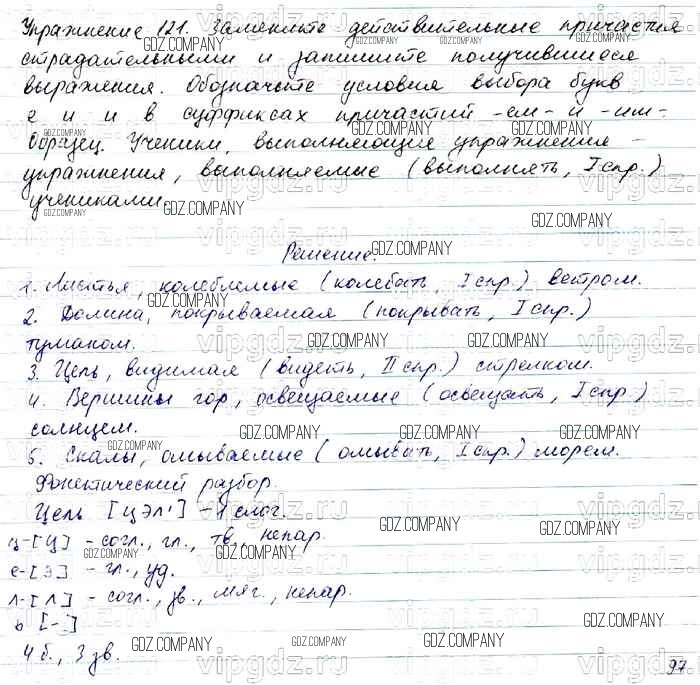 Упражнение 121. Замените действительные причастия
страдательными и запишите получившиеся
выражения. Обозначьте условия выбора букв
е и и в суффиксах причастий -ем- и -им-.
Образец. Ученики, выполняющие упражнение -
упражнения, выполняемые (выполнять, I спр.)
учениками.
Решение.
1. Листья, колеблемые (колебать, I спр.) ветром.
2. Долина, покрываемая (покрывать, I спр.)
туманом.
3. Цель, видимая (видеть, II спр.) стрелком.
4. Вершины гор, освещаемые (освещать, I спр.)
солнцем.
5. Скалы, омываемые (омывать, I спр.) морем.
Фонетический разбор.
Цель [цэл'] - 1 слог.
ц-[ц] - согл., гл., тв., непар.
е-[э] - гл., уд.
л-[л] - согл., зв., мяг., непар.
ь [-]
4 б., 3 зв.
97
GDZ.COMPANY
vipgdz.ru